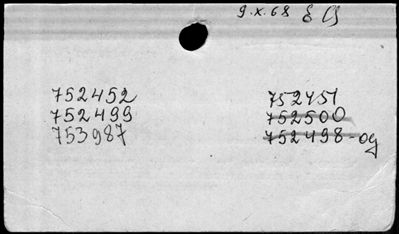 9.x.68
752452
752499
753987
752451
752500
752498-og